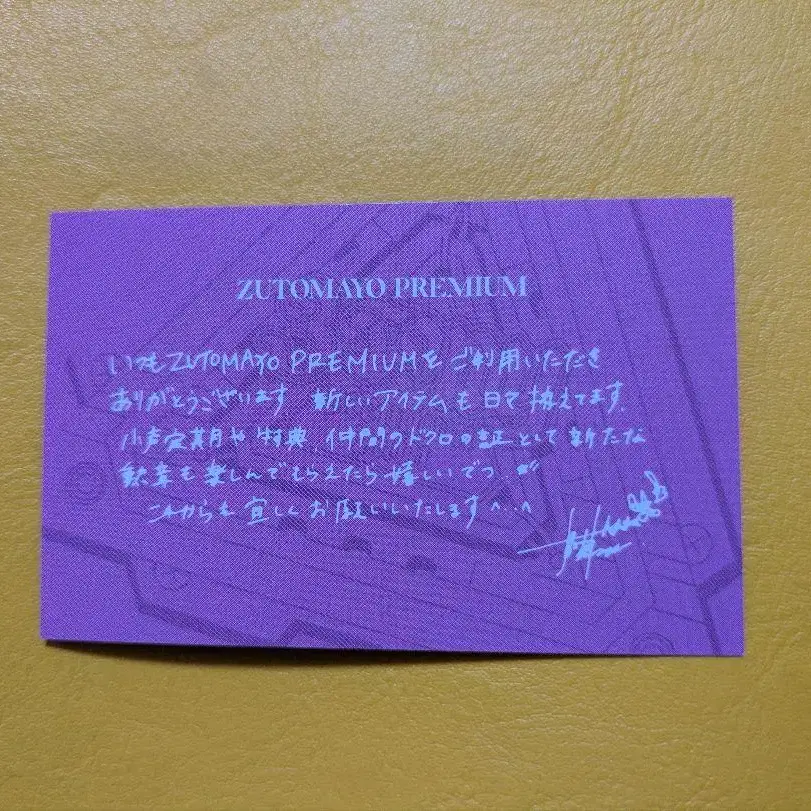 ZUTOMAYO PREMIUM
いつもZUTOMAYO PREMIUMをご利用いただき
ありがとうございます 新しいアイテムも日々 拵えてます.
小声定期月や特典, 仲間のドクロの証として新たな
勲章も楽しんでもらえたら嬉しいでつ.
これからも宜しくお願いいたします^..^